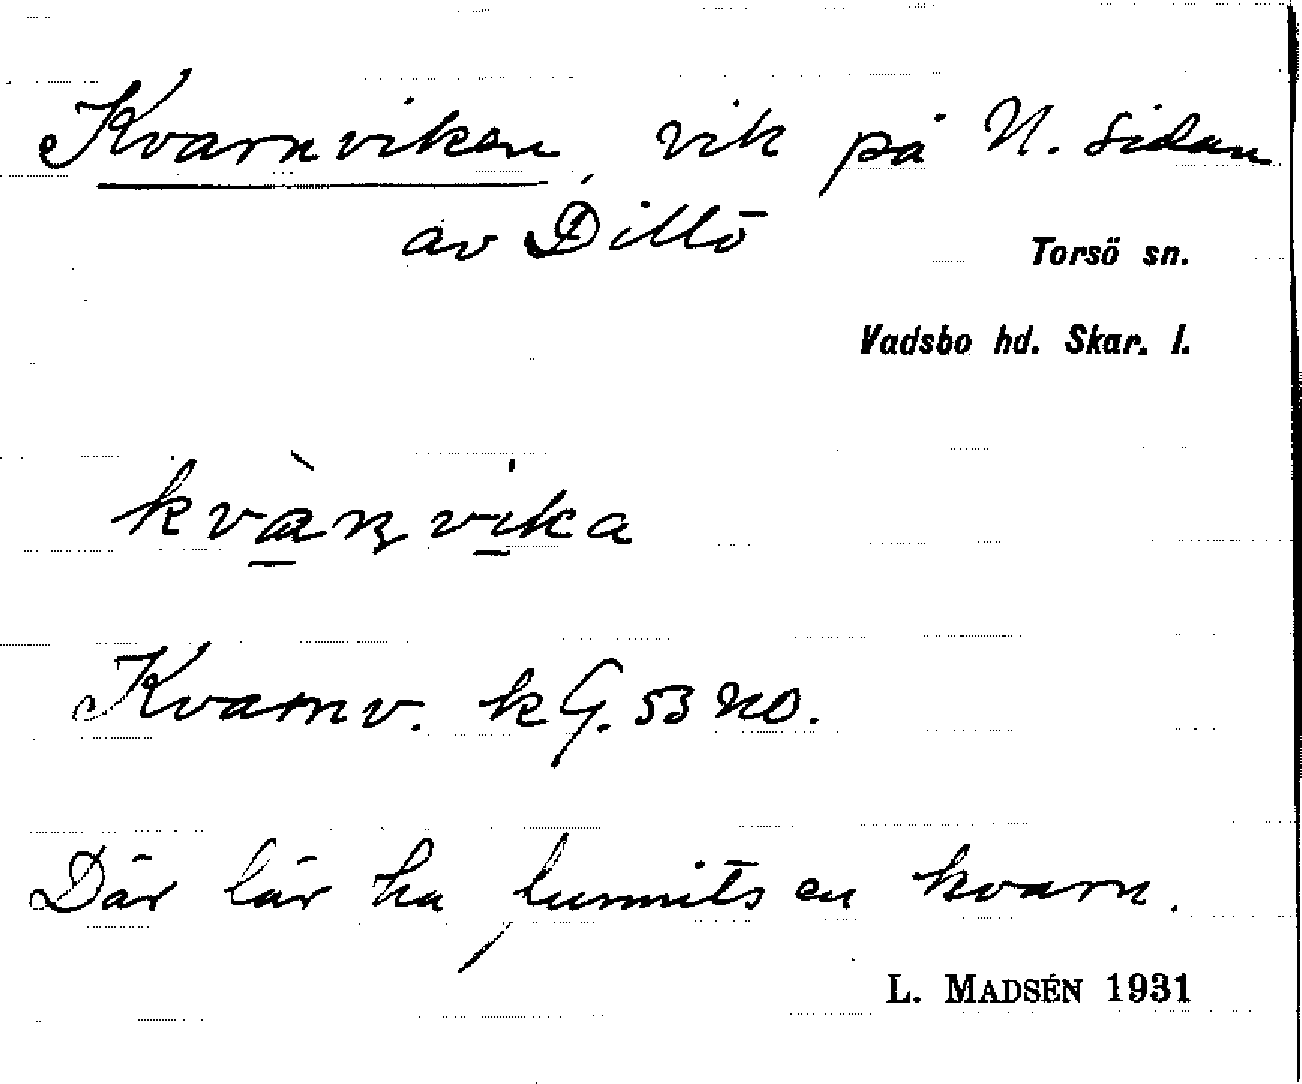 Kvarnviken, vik på N. sidan
av Dillö
Torsö sn.
Vadsbo hd. Skar. l.
kvànvika
Kvarnv. k G. 53 NO.
Där lär ha funnits en kvarn.
L. MADSÉN 1931